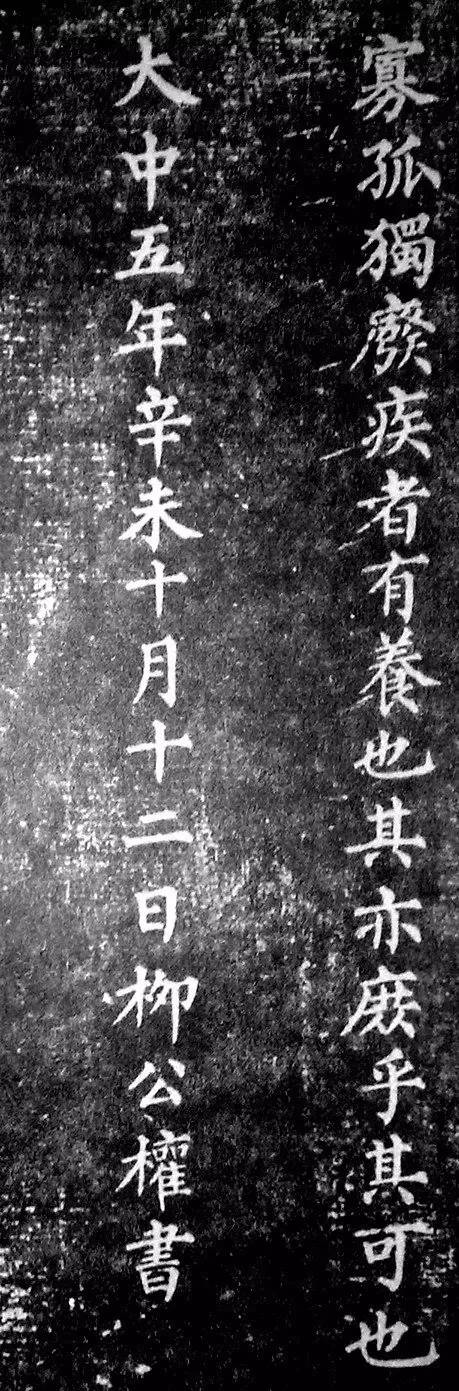 寡孤獨癈疾者有養也其亦庻乎其可也
大中五年辛未十月十二日柳公權書